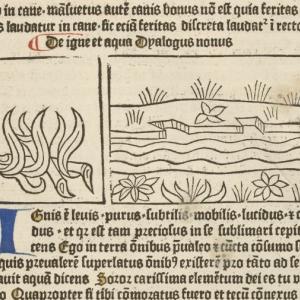 in cane. mãsuetus autẽ canis bonus nõ est quia feritas
s laudatur in cane. sic eciã feritas discreta laudat᷑ i recto
De igne et aqua Dyalogus nonus
Ignis ẽ leuis. purus. subtilis. mobilis. lucidus. et c
dus. et qr̃ est tam preciosus in se sublimari cepit
cens Ego in terra õnibus p̃ualeo et cũcta cõsumo s
quis preualere superlatus õnibꝰ existere pro tãto ad se
auit aquã dicens Soror carissima elemẽtum dei es tu p
o Quapropter si tibi cõmoratus fuero et tecũ cõnexus